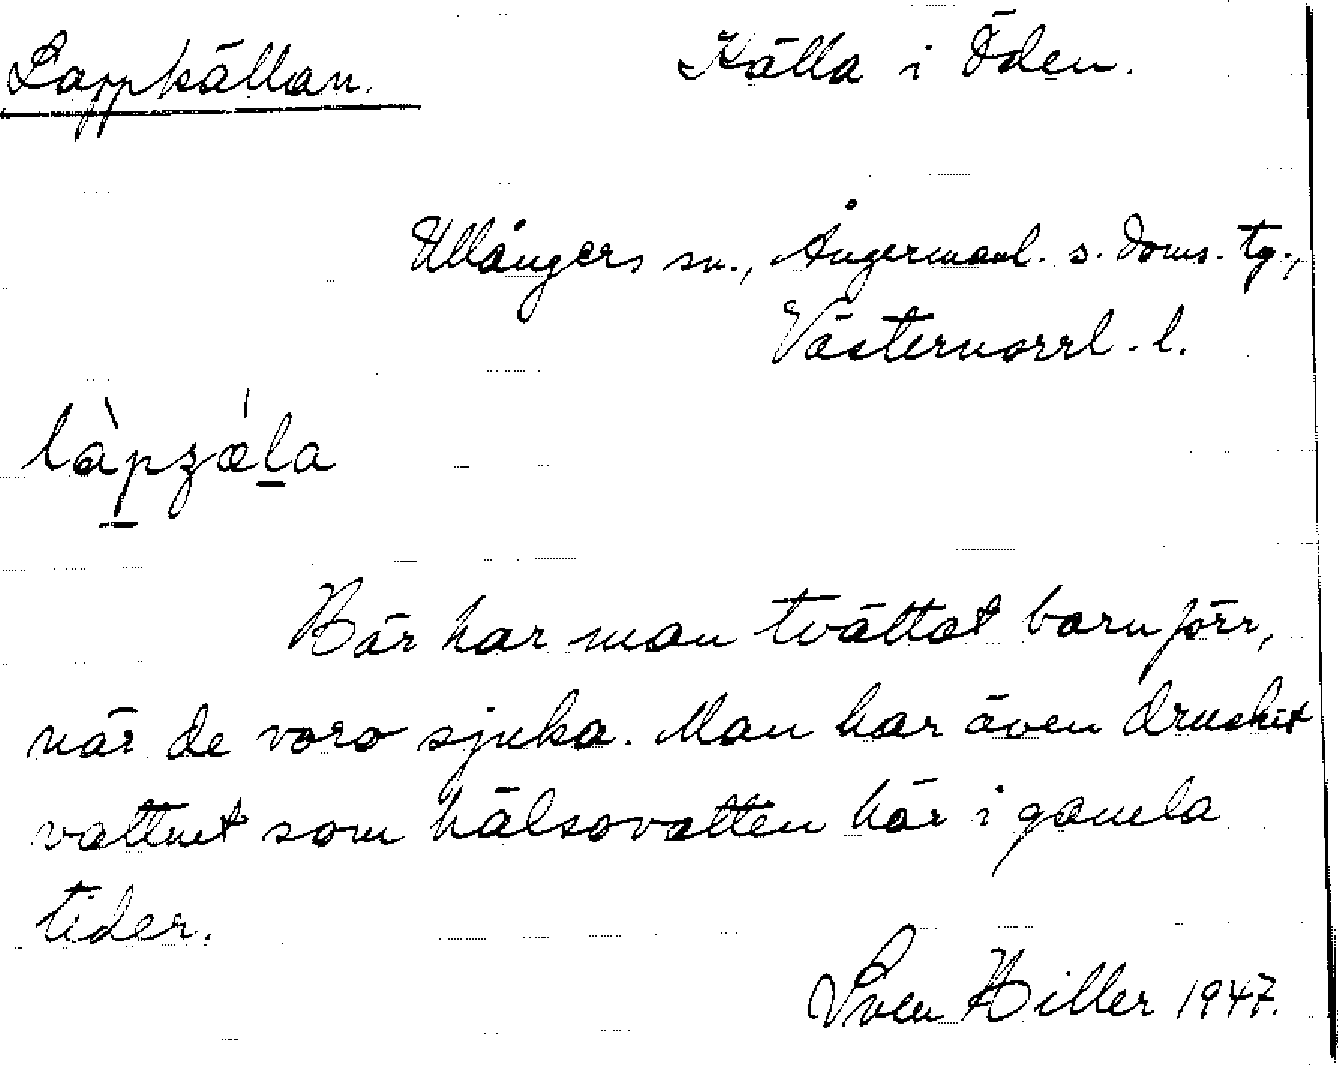 Lappkällan. Källa i Öden.
Ullångers sn., Ångermanl. s. doms. tg.,
Västernorrl. l.
làpʒǽla
Här har man tvättat barn förr,
när de voro sjuka. Man har även druckit
vattnet som hälsovatten här i gamla
tider.
Sven Hiller 1947.